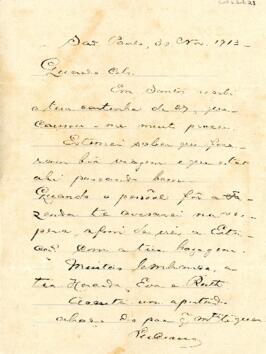 São Paulo, 30 Nov. 1913
Querido
Em Santos recebi
a tua cartinha de 27, que
causou-me muito prazer.
Estimei saber que fize-
ram boa viagem e que estás
ahi passando bem.
Quando o pessoal fôr á Fa-
zenda te avisarei na ves-
pera, a fim de
com a tua bagagem
Muitas lembranças a
tia Eva e Ruth
Acceita um apertado
abraço do pae q. mto te quer